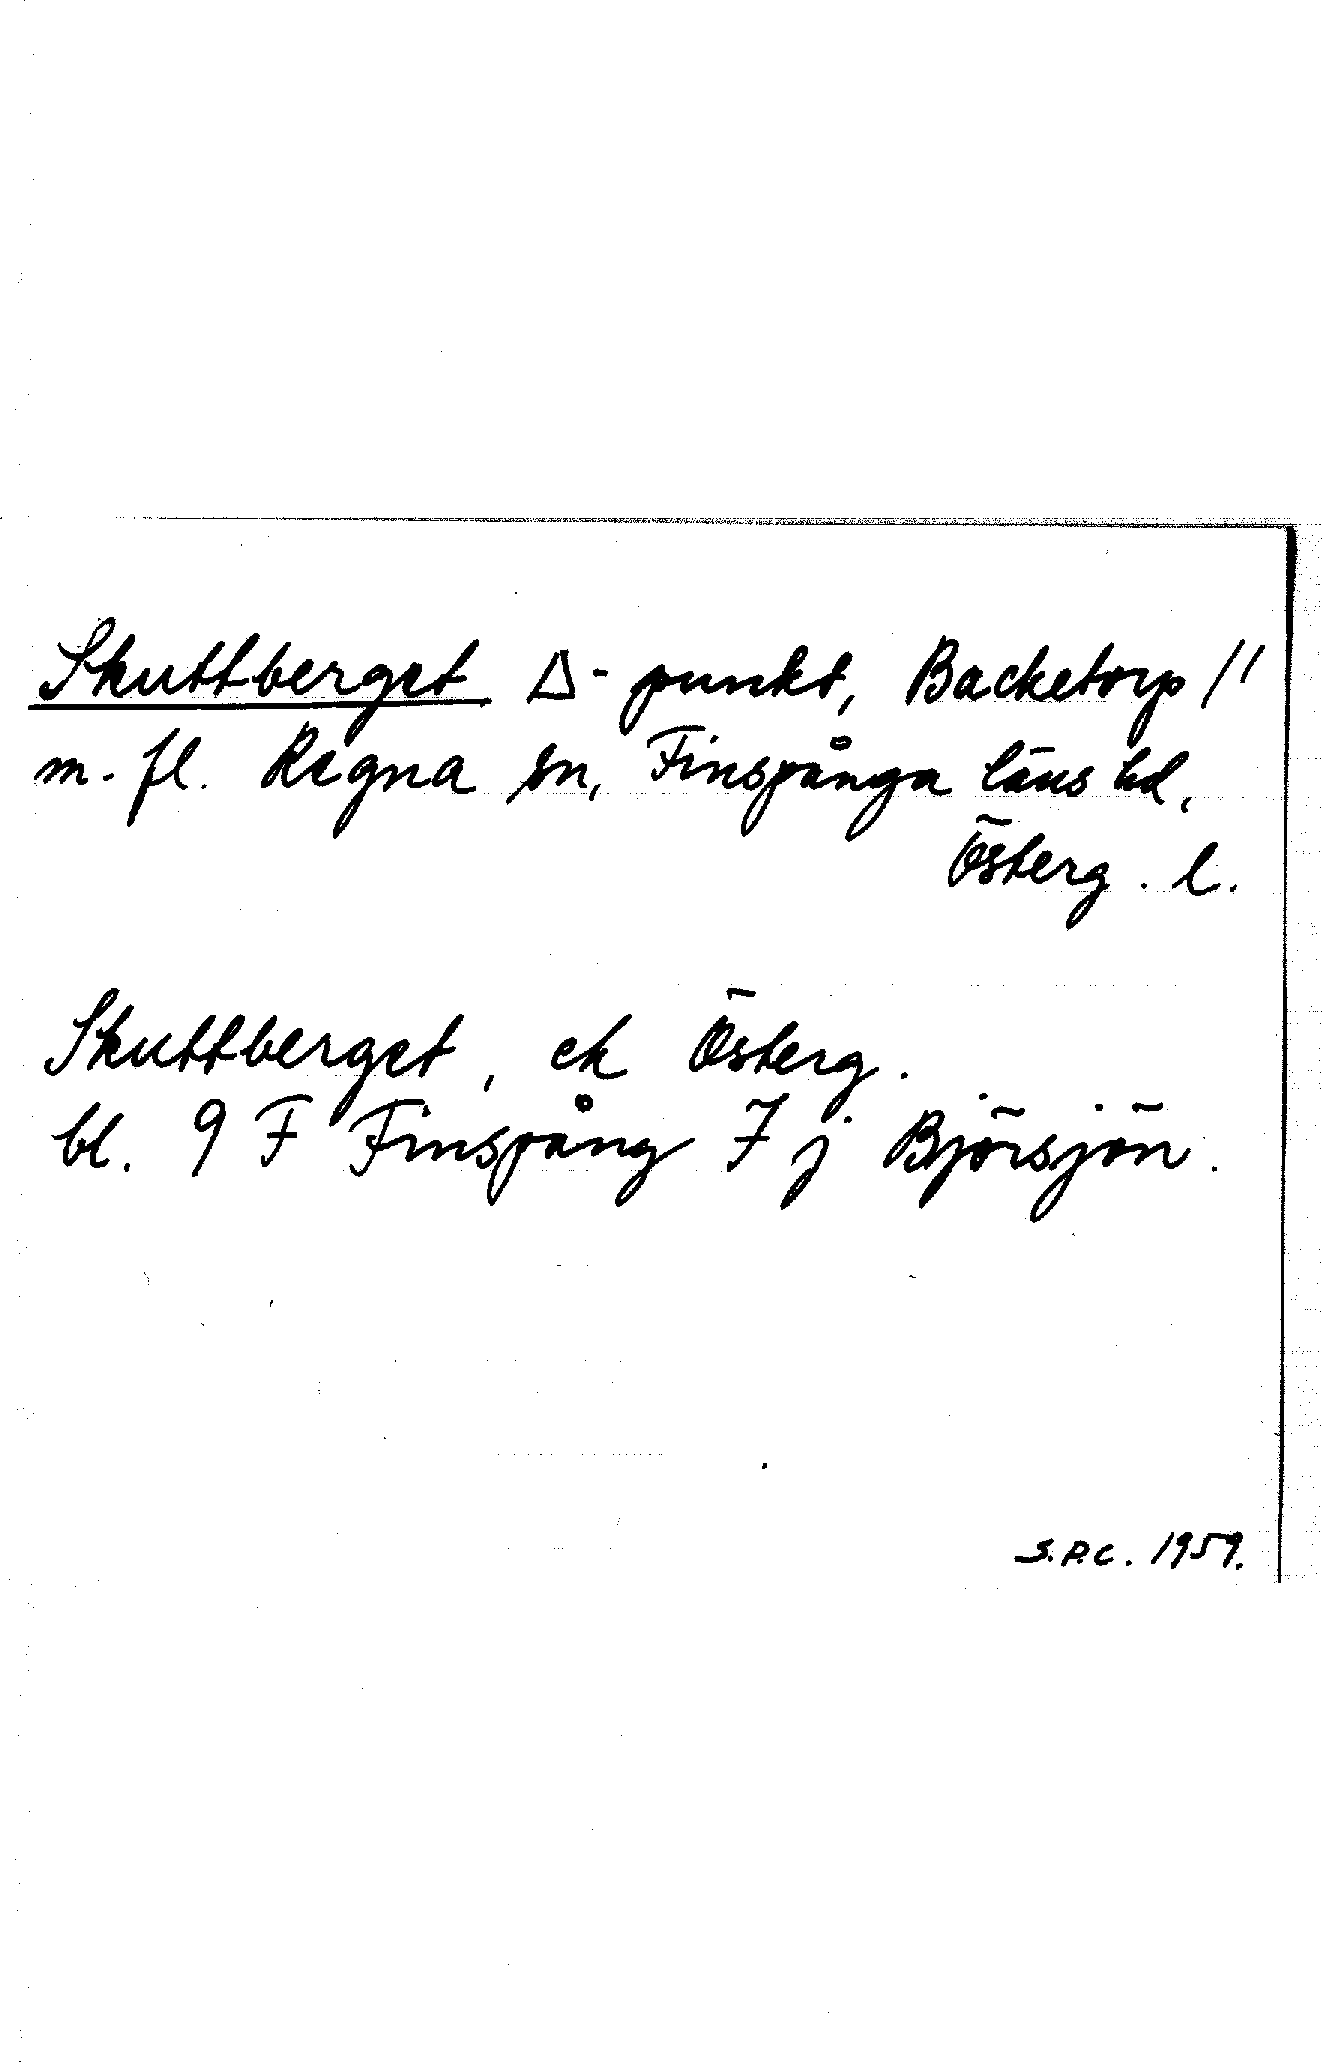 Skuttberget Δ-punkt, Backetorp 1¹
m. fl. Regna sn, Finspånga läns hd,
Österg. l.
Skuttberget, ek Österg.
bl. 9 F Finspång 7 j Björsjön.
S.P.C. 1959.